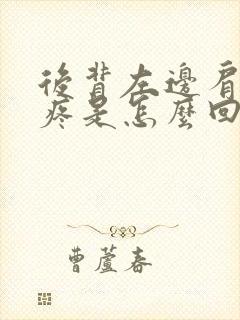 後背左邊肩
疼是怎麼回
曹蘆春